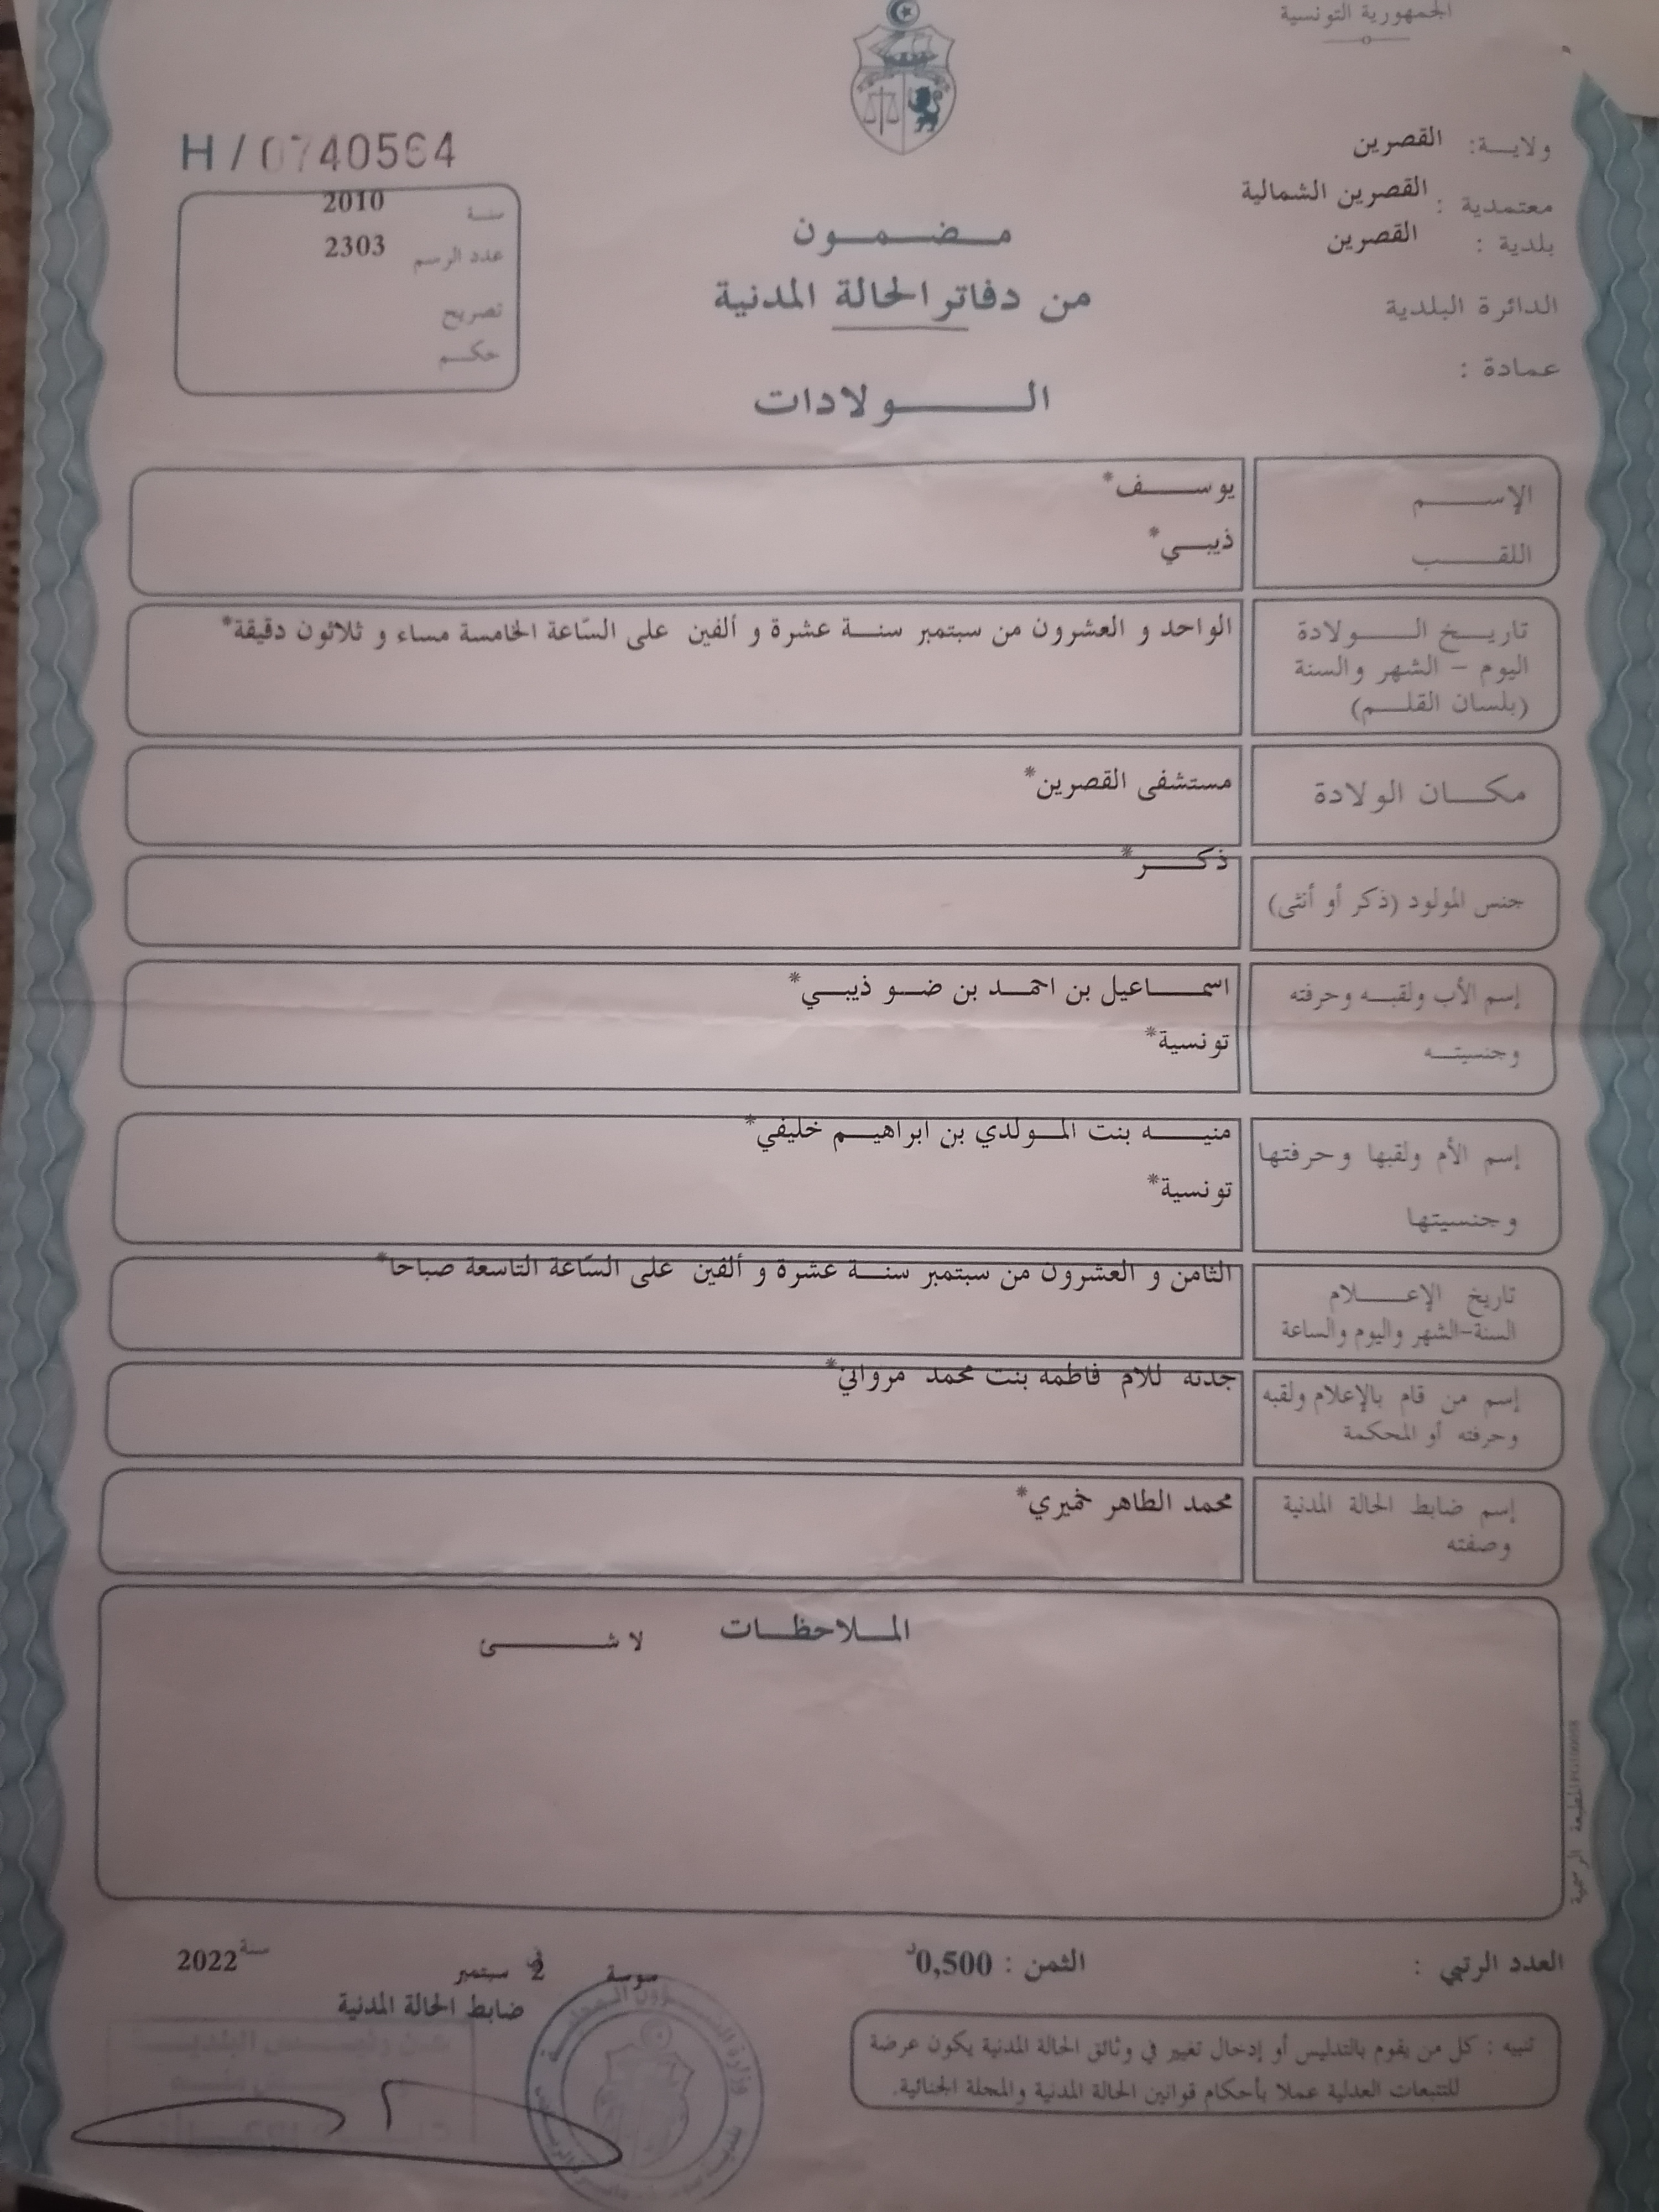 الجمهورية التونسية
ولايـة: القصرين
معتمدية : القصرين الشمالية
بلدية : القصرين
الدائرة البلدية
عمادة :
H / 0740564
سنة 2010
عدد الرسم 2303
تصريح
حكم
مضمون
من دفاتر الحالة المدنية
الولادات
الإسم يوسف*
اللقب ذيبي*
تاريخ الولادة الواحد و العشرون من سبتمبر سنة عشرة و ألفين على السّاعة الخامسة مساء و ثلاثون دقيقة*
اليوم - الشهر والسنة
(بلسان القلم)
مكان الولادة مستشفى القصرين*
جنس المولود (ذكر أو أنثى) ذكر*
إسم الأب ولقبه وحرفته اسماعيل بن احمد بن ضو ذيبي*
وجنسيته تونسية*
إسم الأم ولقبها وحرفتها منيه بنت المولدي بن ابراهيم خليفي*
وجنسيتها تونسية*
تاريخ الإعلام الثامن و العشرون من سبتمبر سنة عشرة و ألفين على السّاعة التاسعة صباحا*
السنة-الشهر واليوم والساعة
إسم من قام بالإعلام ولقبه جدته للام فاطمه بنت محمد مرواني*
وحرفته أو المحكمة
إسم ضابط الحالة المدنية محمد الطاهر خميري*
وصفته
الملاحظات لا شئ
المطبعة الرسمية
العدد الرتبي :
الثمن : 0,500د
سوسة في 2 سبتمبر سنة 2022
ضابط الحالة المدنية
تنبيه : كل من يقوم بالتدليس أو إدخال تغيير في وثائق الحالة المدنية يكون عرضة
للتتبعات العدلية عملا بأحكام قوانين الحالة المدنية والمجلة الجنائية.